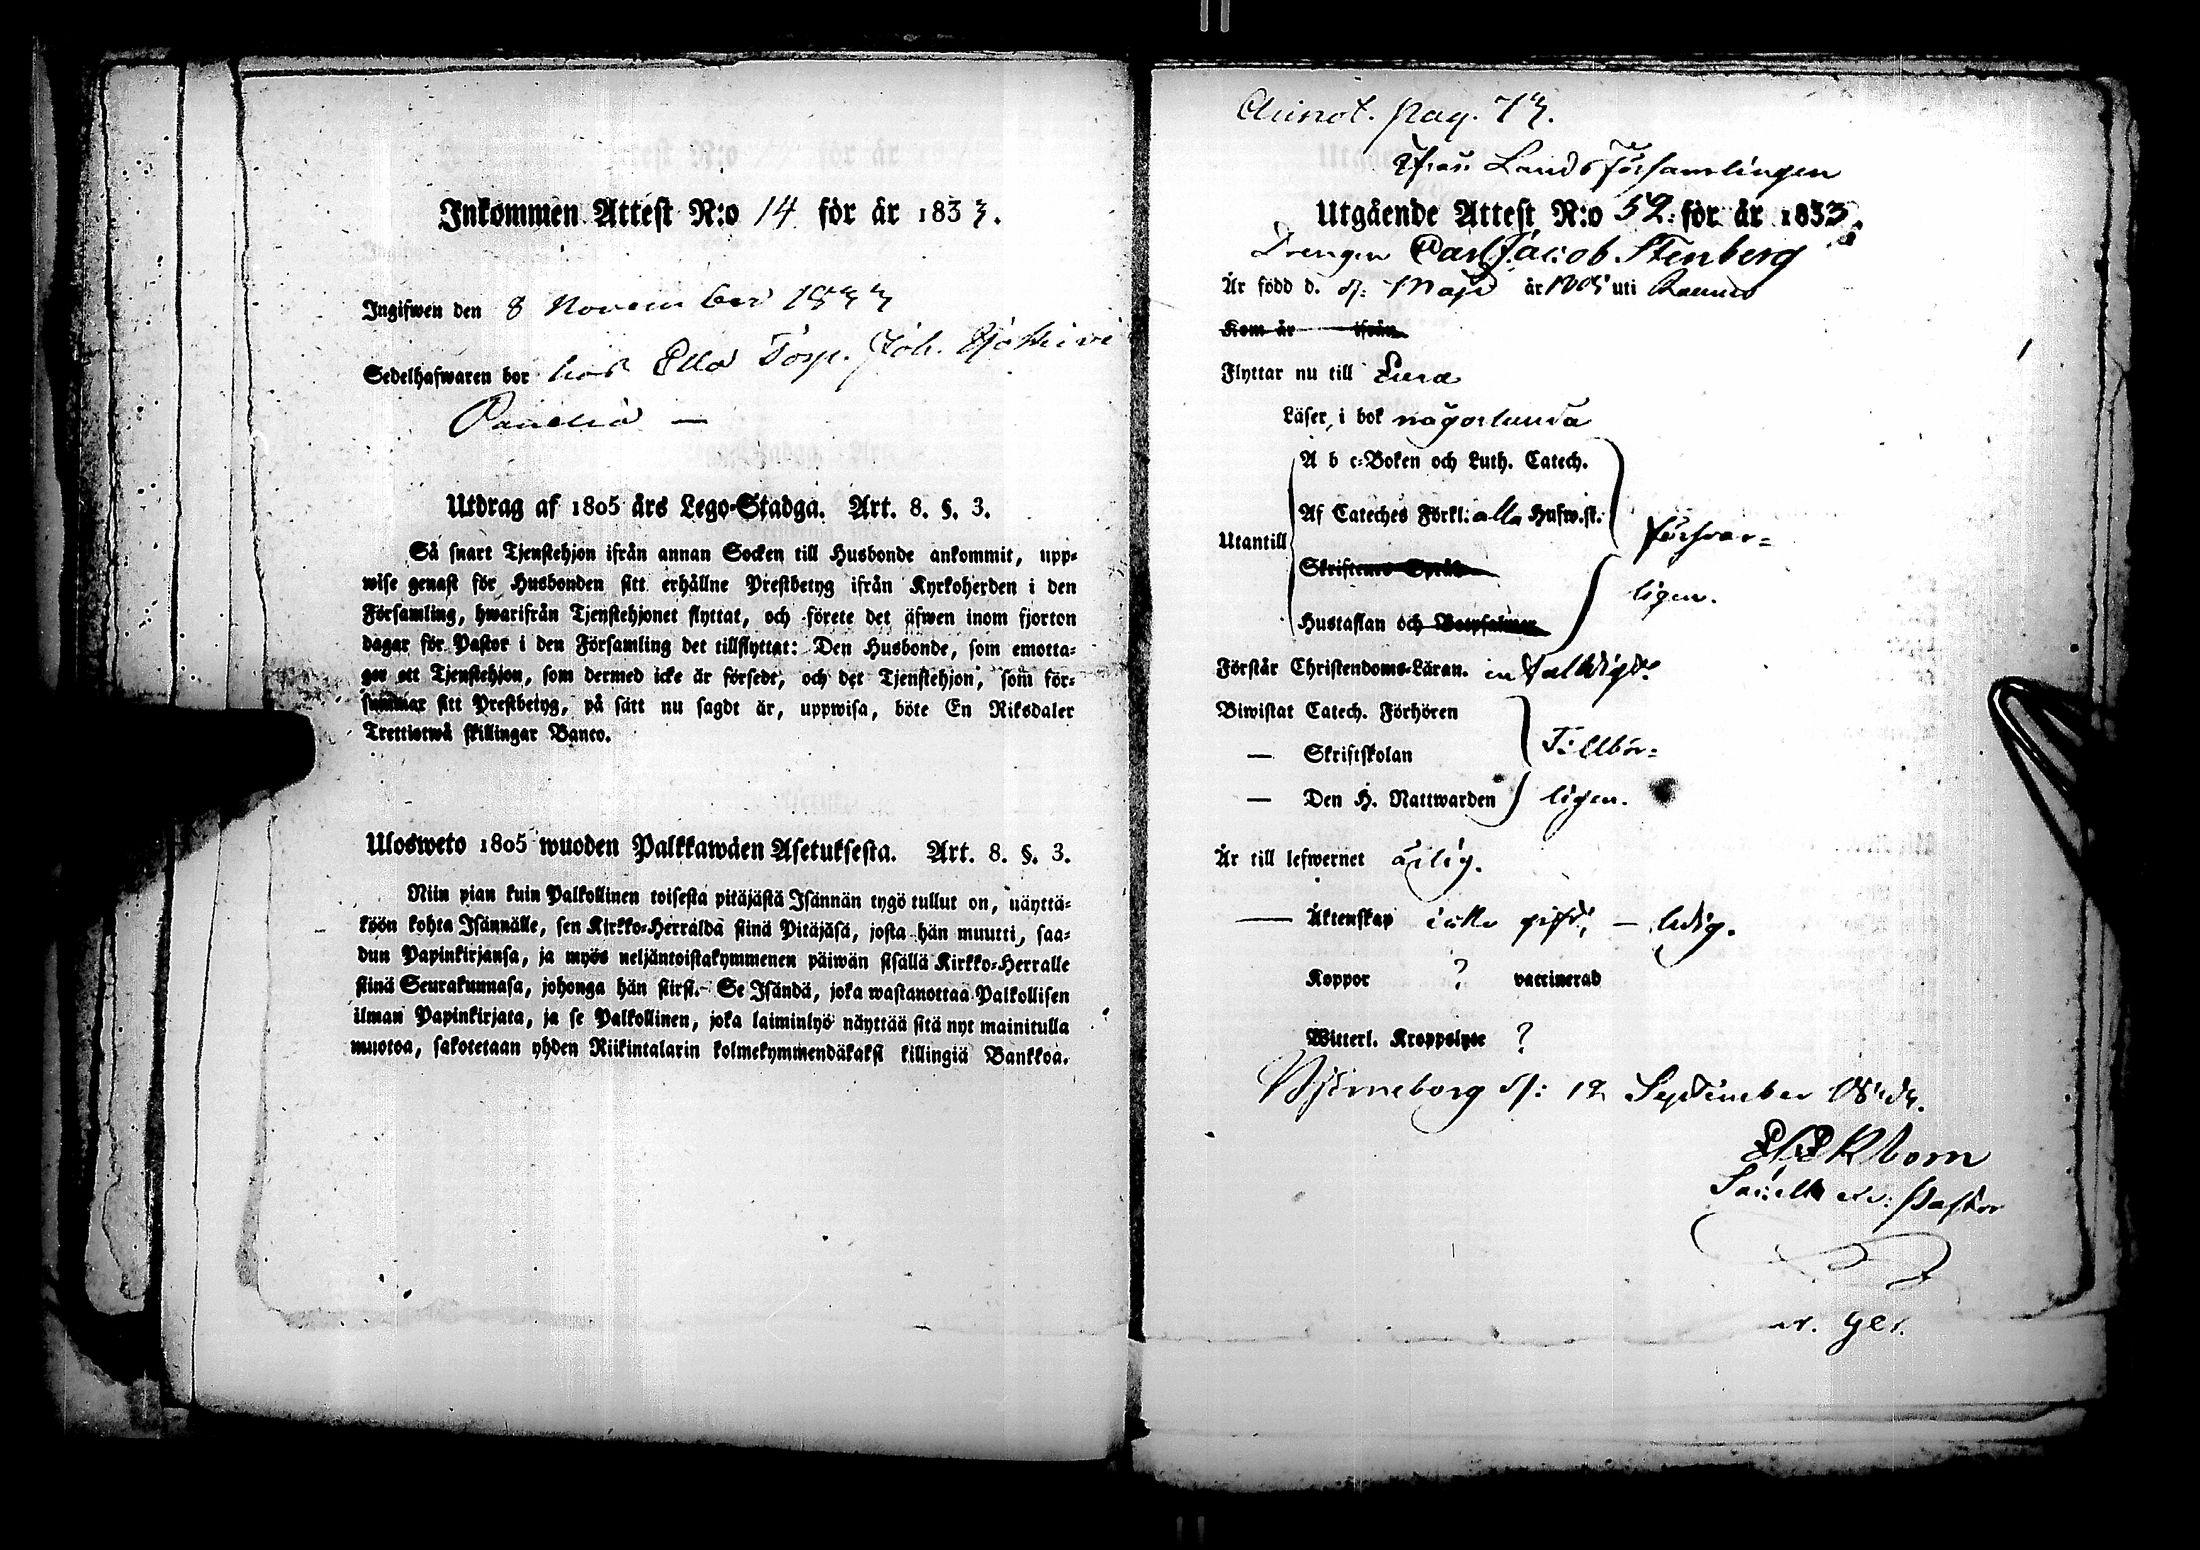 Inkommen Attest N:o 14 för år 1833.
Ingifwen den 8 November 1833
Sedelhafwaren bor hos Ella Torp. Joh.
Panelia —
Utdrag af 1805 års Lego-Stadga. Art. 8. §. 3.
Så snart Tjenstehjon ifrån annan Socken till Husbonde ankommit, upp-
wise genast för Husbonden sitt erhållne Prestbetyg ifrån Kyrkoherden i den
Församling, hwarifrån Tjenstehjonet flyttat, och förete det äfwen inom fjorton
dagar för Pastor i den Församling det tillflyttat: Den Husbonde, som emotta-
ger ett Tjenstehjon, som dermed icke är försedt, och det Tjenstehjon, som för-
summar sitt Prestbetyg, på sätt nu sagdt är, uppwisa, böte En Riksdaler
Trettiotwå skillingar Banco.
Ulosweto 1805 wuoden Palkkawäen Asetuksesta. Art. 8. §. 3.
Niin pian kuin Palkollinen toisesta pitäjästä Isännän tygö tullut on, näyttä-
köön kohta Isännälle, sen Kirkko-Herralda siinä Pitäjäsä, josta hän muutti, saa-
dun Papinkirjansa, ja myös neljäntoistakymmenen päiwän sisällä Kirkko-Herralle
siinä Seurakunnasa, johonga hän siirsi. Se Isändä, joka wastanottaa Palkollisen
ilman Papinkirjata, ja se Palkollinen, joka laiminlyö näyttää sitä nyt mainitulla
muotoa, sakotetaan yhden Riikintalarin kolmekymmendäkaksi killingiä Bankkoa.
Annot. pag. 73.
Ifrån Landsförsamlingen
Utgående Attest N:o 52. för år 1833.
Drengen Carl Jacob Stenberg
Är född d. Maji år uti Raumo
Kom år ifrån
Flyttar nu till Eura
Läser, i bok någorlunda
A b c-Boken och Luth. Catech.
Af Cateches Förkl: alla Hufwst.
Utantill
försvar-
Skriftenes Språk
ligen.
Hustaflan och Botpsalmer
Förstår Christendoms-Läran. enfalldigt.
Biwistat Catech. Förhören
— Skriftskolan
Tillbör-
— Den H. Nattwarden
ligen.
Är till lefwernet ärlig.
— Äktenskap icke gift, — ledig.
Koppor ? vaccinerad
Witterl. Kroppslyte ?
Björneborg d: 12 September 1833.
Ekbom
Sacell. Pastor